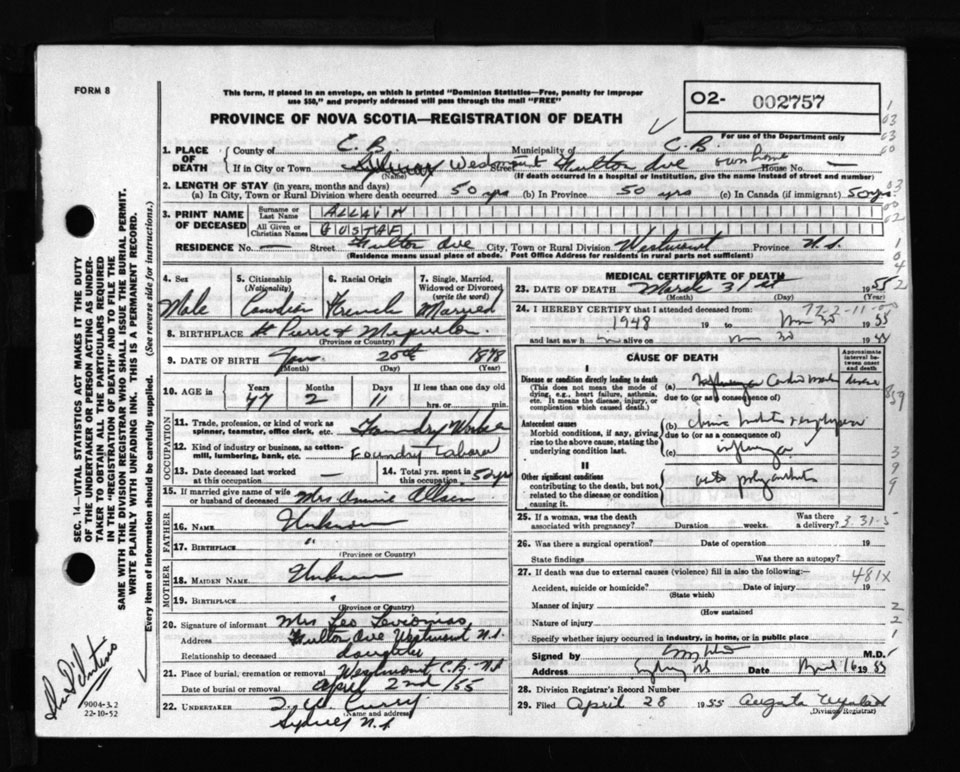 FORM 8
This form, if placed in an envelope, on which is printed "Dominion Statistics—Free, penalty for improper
use $50," and properly addressed will pass through the mail "FREE"
O2- 002757
For use of the Department only
PROVINCE OF NOVA SCOTIA—REGISTRATION OF DEATH
1. PLACE OF DEATH
County of C. B. Municipality of C. B.
If in City or Town Westmount Street Fulton Ave House No. own home —
(Name) (If death occurred in a hospital or institution, give the name instead of street and number)
2. LENGTH OF STAY (in years, months and days)
(a) In City, Town or Rural Division where death occurred 50 yrs (b) In Province 50 yrs (c) In Canada (if immigrant) 50 yrs
3. PRINT NAME OF DECEASED
Surname or Last Name ALLAIN
All Given or Christian Names GUSTAF
RESIDENCE No. — Street Fulton Ave City, Town or Rural Division Westmount Province N.S.
(Residence means usual place of abode. Post Office Address for residents in rural parts not sufficient)
4. Sex
Male
5. Citizenship (Nationality)
Canadian
6. Racial Origin
French
7. Single, Married, Widowed or Divorced (write the word)
Married
8. BIRTHPLACE St Pierre & Miquelon
(Province or Country)
9. DATE OF BIRTH Jan. 20th 1878
(Month) (Day) (Year)
10. AGE in Years 77 Months 2 Days 11 If less than one day old
hrs. or min.
OCCUPATION
11. Trade, profession, or kind of work as spinner, teamster, office clerk, etc. Foundry Worker
12. Kind of industry or business, as cotton-mill, lumbering, bank, etc. Foundry Labora
13. Date deceased last worked at this occupation —
14. Total yrs. spent in this occupation 50 yrs
15. If married give name of wife or husband of deceased Mrs Annie Allain
FATHER
16. NAME Unknown
17. BIRTHPLACE "
(Province or Country)
MOTHER
18. MAIDEN NAME Unknown
19. BIRTHPLACE "
(Province or Country)
20. Signature of informant Mrs Leo
Address Fulton Ave Westmount N.S.
Relationship to deceased daughter
21. Place of burial, cremation or removal Westmount C.B. N.S
Date of burial or removal April 2nd/55
22. UNDERTAKER Curry
(Name and address)
Sydney N.S.
MEDICAL CERTIFICATE OF DEATH
23. DATE OF DEATH March 31st 1955
(Month) (Day) (Year)
24. I HEREBY CERTIFY that I attended deceased from:
77-2-11
1948 19 to 30 1955
and last saw h alive on 30 19
CAUSE OF DEATH
Approximate interval between onset and death
I
Disease or condition directly leading to death
(This does not mean the mode of dying, e.g., heart failure, asthenia, etc. It means the disease, injury, or complication which caused death.)
(a)
due to (or as a consequence of)
Antecedent causes
Morbid conditions, if any, giving rise to the above cause, stating the underlying condition last.
(b)
due to (or as a consequence of)
(c) influenza
II
Other significant conditions
contributing to the death, but not related to the disease or condition causing it.
25. If a woman, was the death associated with pregnancy? Duration weeks. Was there a delivery?
3-31-5
26. Was there a surgical operation? Date of operation 19
State findings Was there an autopsy?
27. If death was due to external causes (violence) fill in also the following:—
481X
Accident, suicide or homicide? Date of injury 19
(State which)
Manner of injury
(How sustained
Nature of injury
Specify whether injury occurred in industry, in home, or in public place
Signed by M.D.
Address Sydney NS Date April 16 1955
28. Division Registrar's Record Number
29. Filed April 28 1955 Augusta
(Division Registrar)
SEC. 14—VITAL STATISTICS ACT MAKES IT THE DUTY
OF THE UNDERTAKER OR PERSON ACTING AS UNDER-
TAKER TO OBTAIN ALL THE PARTICULARS REQUIRED
IN THE "REGISTRATION OF DEATH" AND TO FILE THE
SAME WITH THE DIVISION REGISTRAR WHO SHALL ISSUE THE BURIAL PERMIT.
WRITE PLAINLY WITH UNFADING INK. THIS IS A PERMANENT RECORD.
Every item of information should be carefully supplied. (See reverse side for instructions.)
9004-3.2
22-10-52